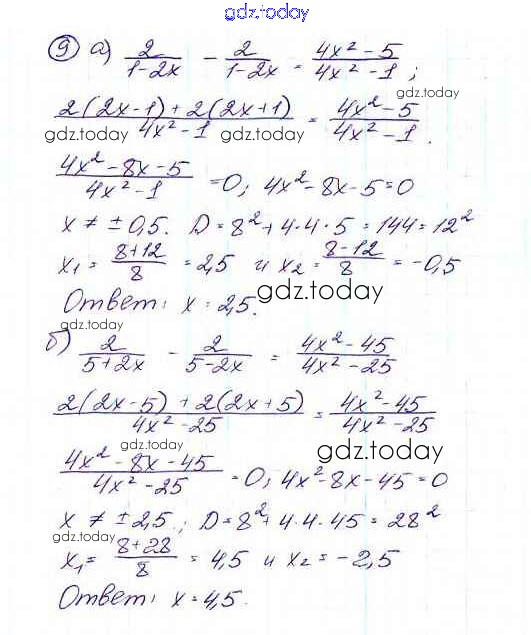 gdz.today
9 а) 2/(1-2x) - 2/(1-2x) = (4x² - 5)/(4x² - 1) ;
(2(2x-1) + 2(2x+1))/(4x² - 1) = (4x² - 5)/(4x² - 1) .
gdz.today gdz.today
(4x² - 8x - 5)/(4x² - 1) = 0; 4x² - 8x - 5 = 0
x ≠ ± 0,5. D = 8² + 4·4·5 = 144 = 12²
x₁ = (8+12)/8 = 2,5 и x₂ = (8-12)/8 = -0,5
gdz.today
Ответ: x = 2,5.
gdz.today
б) 2/(5+2x) - 2/(5-2x) = (4x² - 45)/(4x² - 25)
(2(2x-5) + 2(2x+5))/(4x² - 25) = (4x² - 45)/(4x² - 25)
gdz.today gdz.today
(4x² - 8x - 45)/(4x² - 25) = 0; 4x² - 8x - 45 = 0
x ≠ ± 2,5; D = 8² + 4·4·45 = 28²
gdz.today
x₁ = (8+28)/8 = 4,5 и x₂ = -2,5
Ответ: x = 4,5.